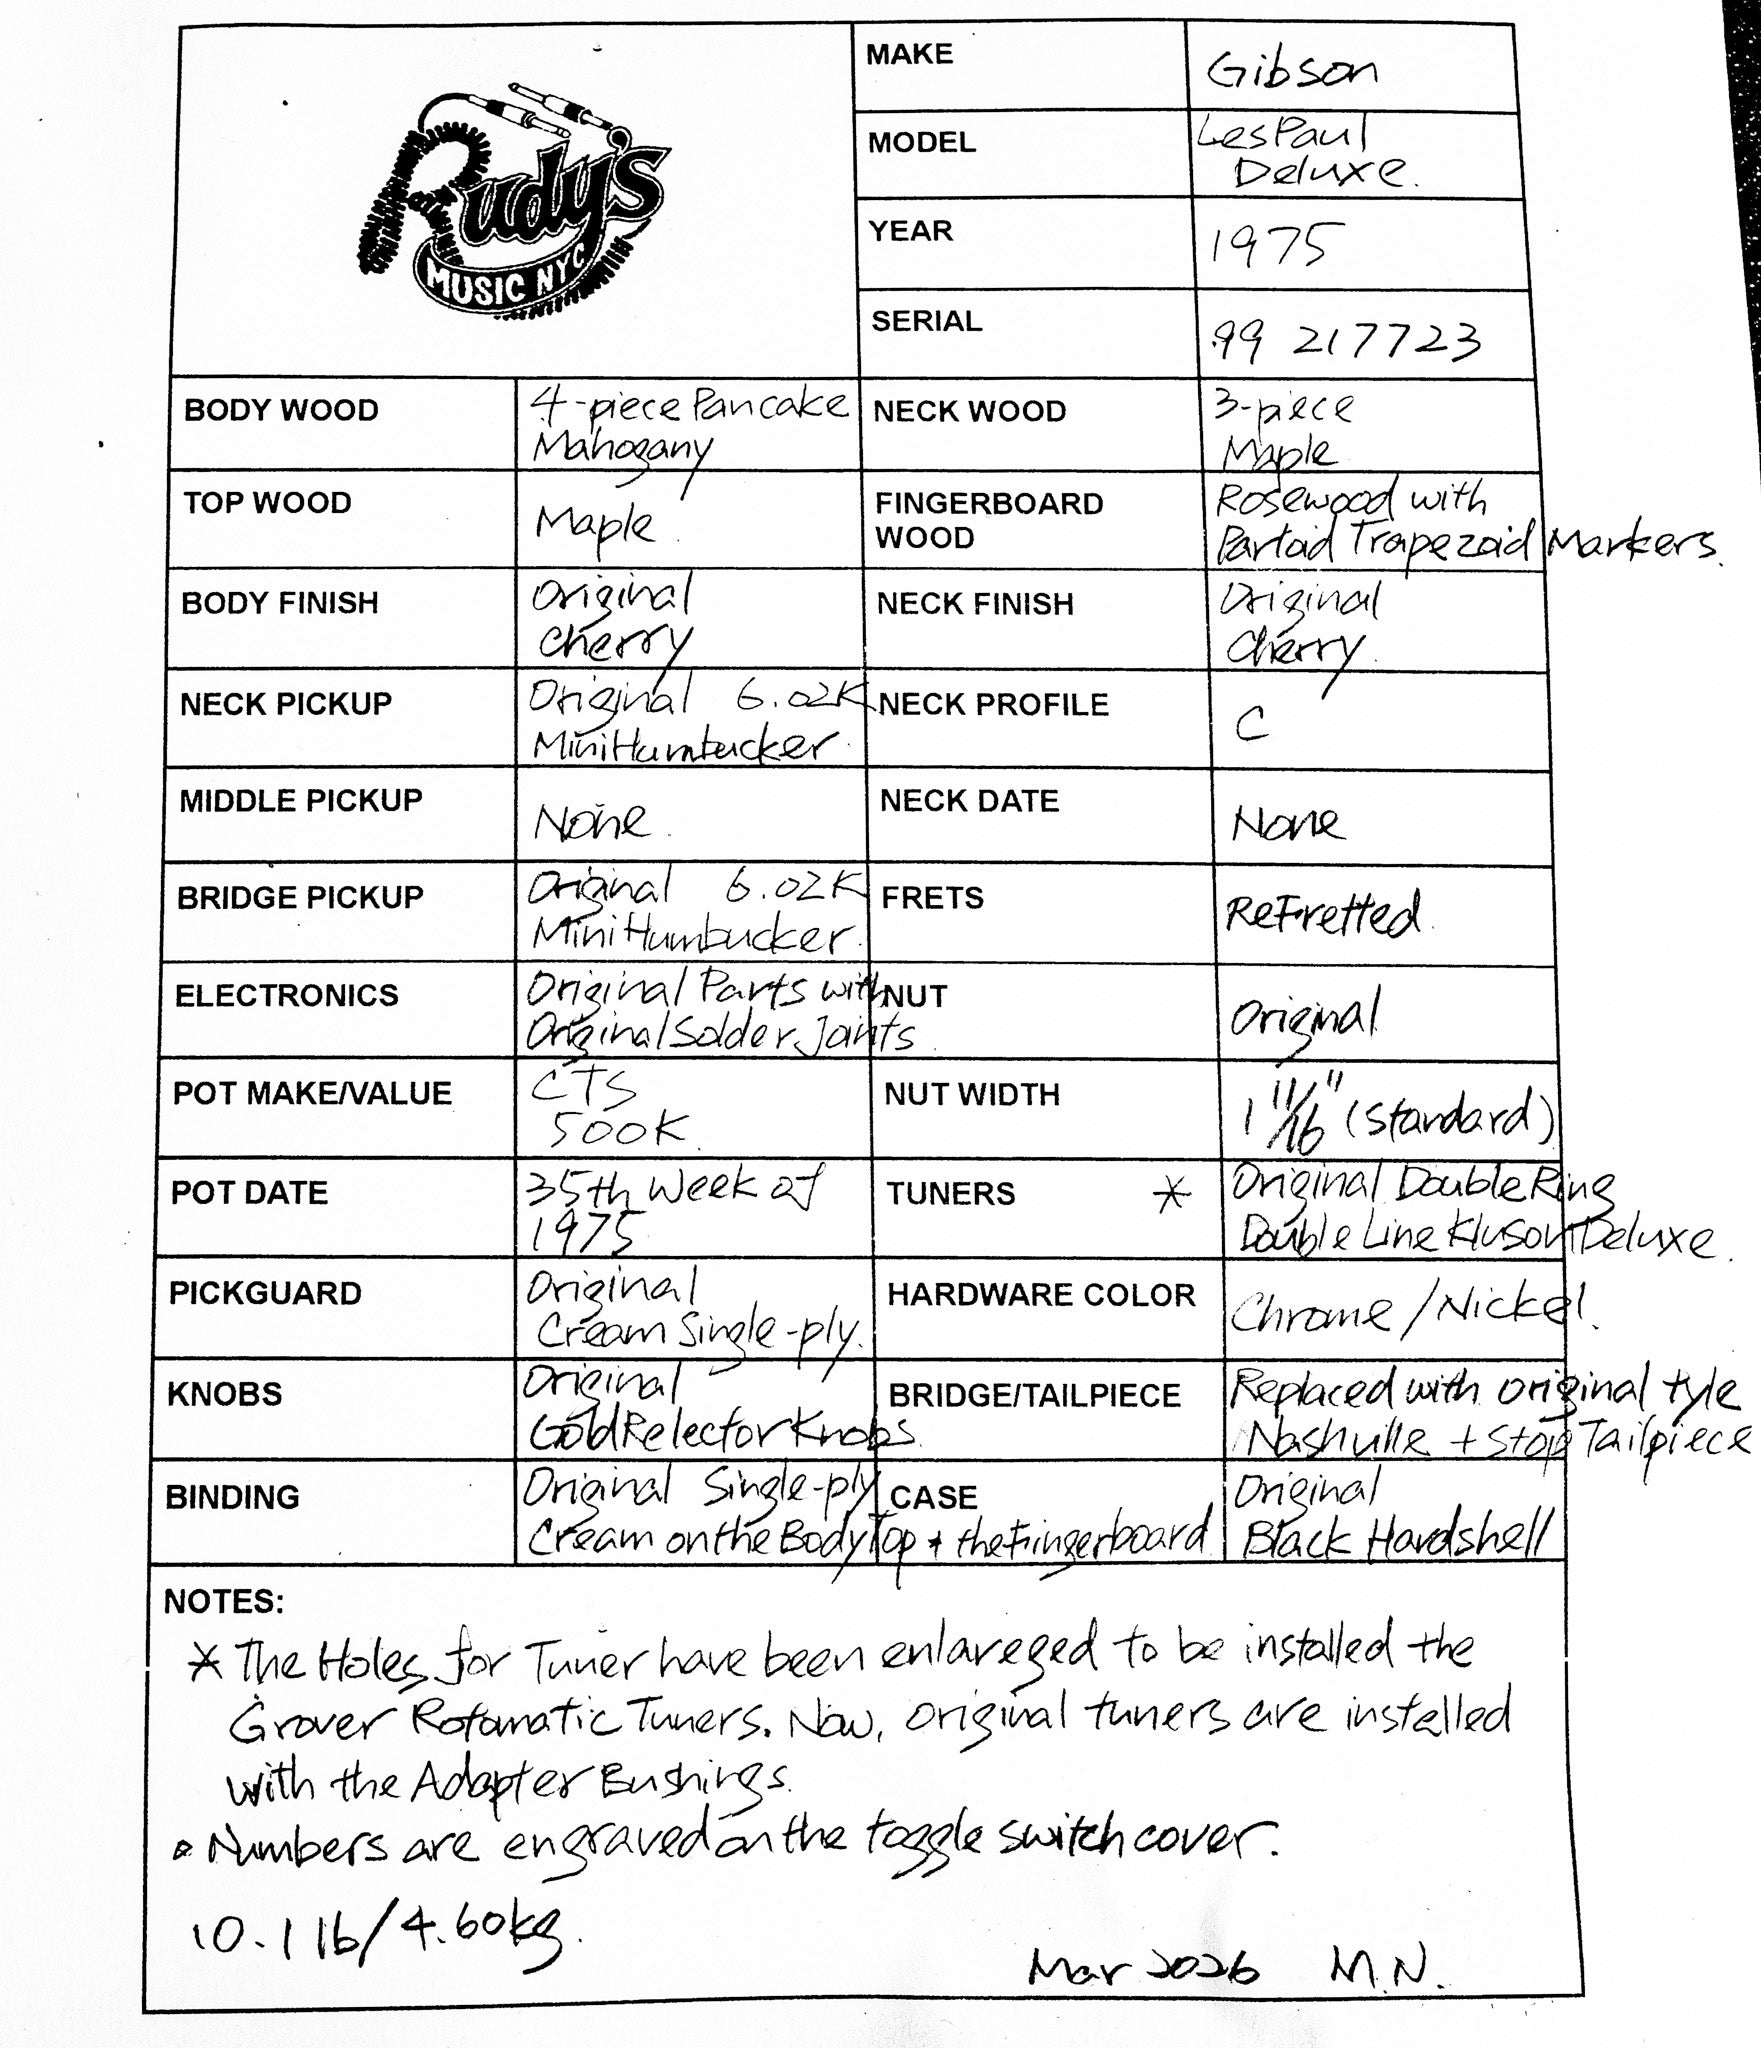 Rudy's
MUSIC NYC
MAKE
Gibson
MODEL
Les Paul
Deluxe.
YEAR
1975
SERIAL
99 217723
BODY WOOD
4-piece Pancake
Mahogany
NECK WOOD
3-piece
Maple
TOP WOOD
Maple
FINGERBOARD
WOOD
Rosewood with
Trapezoid Markers.
BODY FINISH
Original
Cherry
NECK FINISH
Original
Cherry
NECK PICKUP
Original 6.02K
Mini Humbucker.
NECK PROFILE
C
MIDDLE PICKUP
None.
NECK DATE
None
BRIDGE PICKUP
Original 6.02K
Mini Humbucker.
FRETS
ReFretted.
ELECTRONICS
Original Parts with
Original Solder Joints.
NUT
Original
POT MAKE/VALUE
CTS
500K.
NUT WIDTH
1 11/16" (Standard)
POT DATE
35th Week of
1975
TUNERS *
Original Double Ring
Double Line Kluson Deluxe.
PICKGUARD
Original
Cream Single-ply.
HARDWARE COLOR
Chrome/Nickel.
KNOBS
Original
Gold Relector Knobs.
BRIDGE/TAILPIECE
Replaced with original tyle
Nashville + Stop Tailpiece
BINDING
Original Single-ply
Cream on the Body Top + the Fingerboard
CASE
Original
Black Hardshell
NOTES:
* The Holes for Tuner have been enlareged to be installed the
Grover Rotomatic Tuners. Now, original tuners are installed
with the Adapter Bushings.
• Numbers are engraved on the toggle switch cover.
10.1 lb/4.60kg.
Mar 2026 M.N.